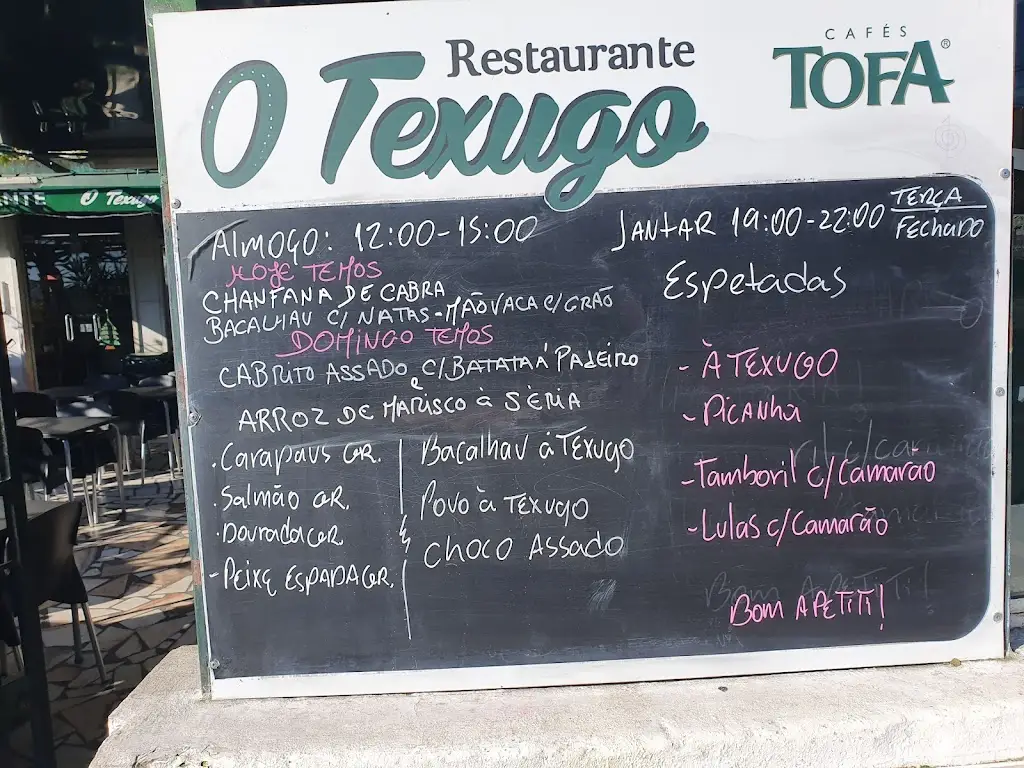 Restaurante
O Texugo
CAFÉS
TOFA®
O Texugo
ALMOÇO: 12:00-15:00
HOJE TEMOS
CHANFANA DE CABRA
BACALHAU C/ NATAS - MÃO VACA C/ GRÃO
DOMINGO TEMOS
CABRITO ASSADO C/BATATA À PADEIRO
e
ARROZ DE MARISCO à SÉRIA
.Carapaus GR.
.Salmão GR.
.Dourada GR
-PEIXE ESPADA GR.
Bacalhau à TEXUGO
Povo à TEXUGO
CHOCO ASSADO
JANTAR 19:00-22:00
TERÇA
FECHADO
Espetadas
- À TEXUGO
- PICANHA
-Tamboril c/Camarão
-Lulas c/Camarão
Bom APETITI!